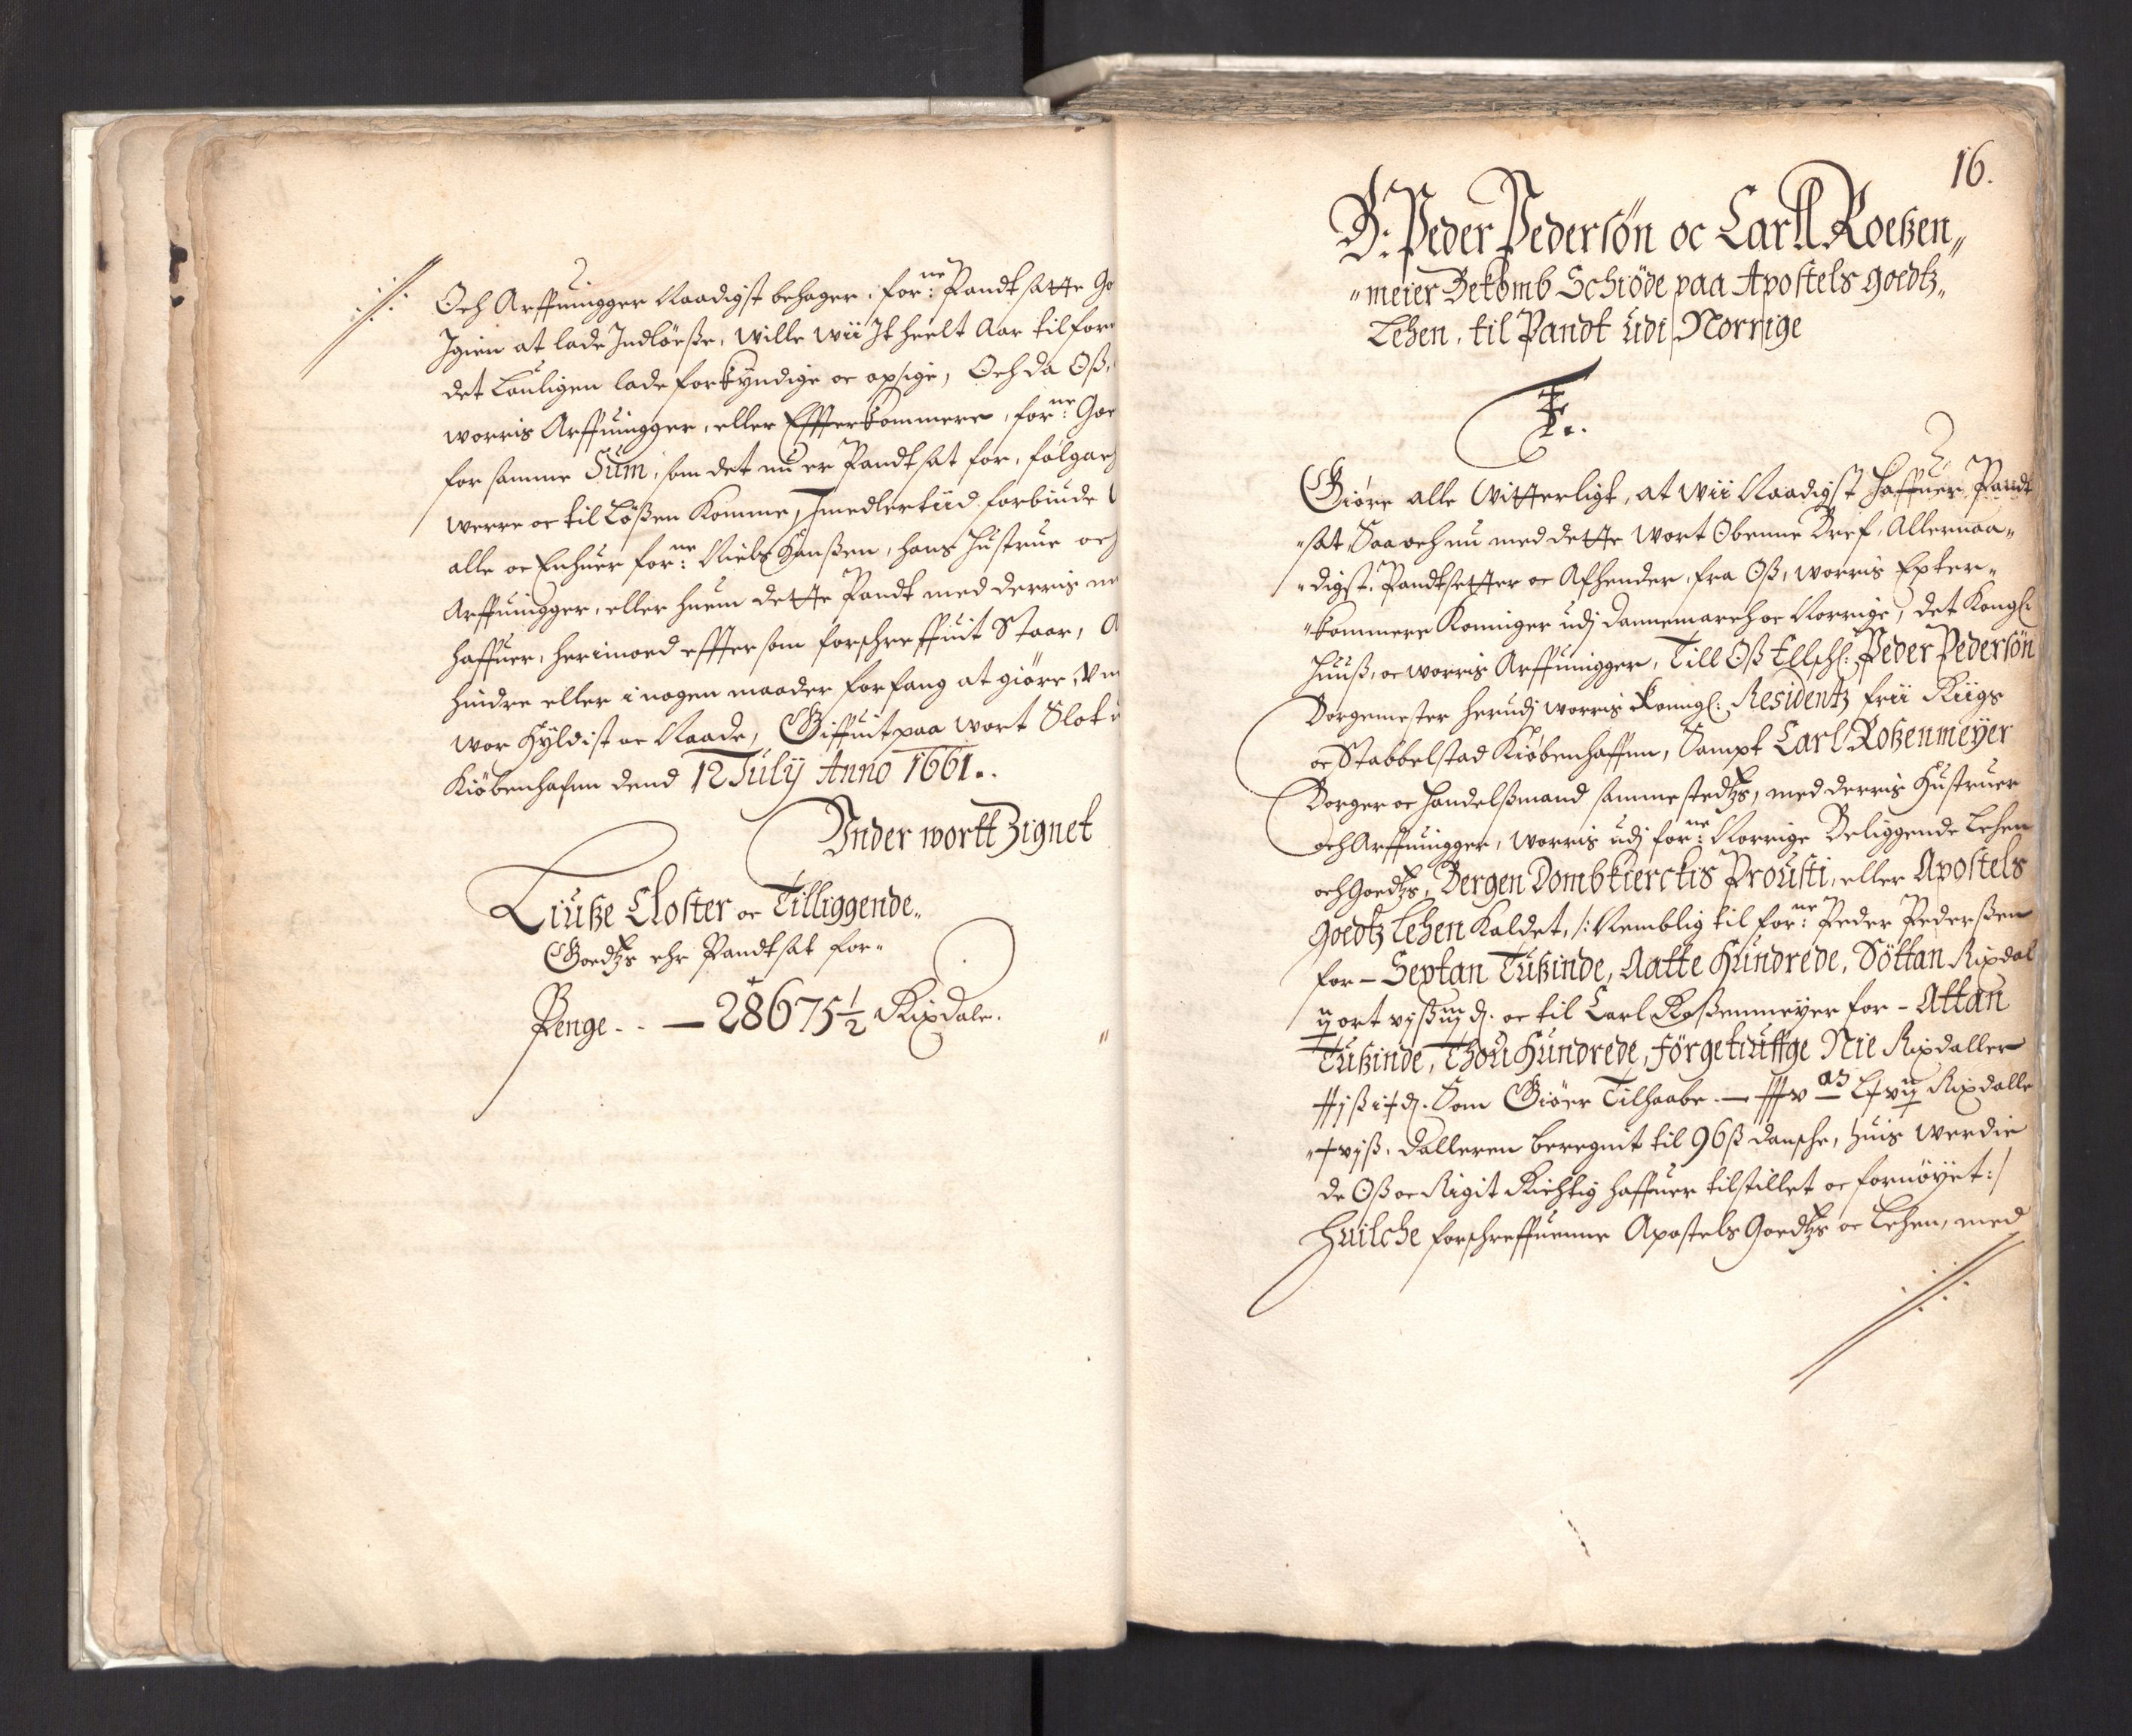 Och Arffuingger Naadigst behager, for:ne Pandtsatte Go
Igien at lade Indlöeße, wille wii Jt heelt Aar tilforn
det Louligen lade forkyndige oc opsige, Och da Oß,
worris Arffuingger, eller Effterkommere, for:ne Goe
for samme Sum, som det nu er Pandtsat for, følgac
werre oc til Lößen Komme, Jmedlertiid forbiude
alle oc Enhuer for:ne Niels Hanßen, hans Hustrue och
Arffuingger, eller huem dette Pandt med derris m
haffuer, herimoed effter som forschreffuit Staar, A
hindre eller i nogen maader forfang at giöre, Vn
wor Hyldist oc Naade, Giffuit paa wort Slot
Kiöbenhafnn dend 12 Julÿ Anno 1661..
Vnder wortt Zignet
Liuße Closter oc Tilliggende„
Goedtzs ehr Pandtsat for„
Penge - - — 28675 1/2 Rixdale.
16.
B: Peder Pedersön oc Carll Roeßen„
„meier Bekomb Schiöde paa Apostels goedtz„
Lehen, til Pandt udi Norrige
F..
Giöre alle Witterligt, at wii Naadigst haffuer Pandt
„sat, Saa och nu med dette wort Obenne Bref, Allernaa„
„digst, Pandtsetter oc Afhender, fra Oß, worris Epter„
„kommere Konniger udj Dannemarch oc Norrige, det Kongl:
Huuß, oc worris Arffuingger, Till Oß Ellschl: Peder Pedersön
Borgemester herudj worris konigl: Residentz frii Riigs
oc Stabbelstad Kiöbenhaffnn, Sampt Carl Roßenmeÿer
Borger oc Handelßmand sammestedtzs, med derris Hustruer
och Arffuingger, worris udj for:ne Norrige Beliggende Lehen
och Goedtzs, Bergen Dombkierckis Prousti, eller Apostels
goedtz Lehen Kaldet, /: Nemblig til for:ne Peder Pederßen
for – Septan Tußinde, Aatte Hundrede, Söttan Rixdal
ij ort vjß iiij d. oc til Carl Roßenmeyer for – Attan
Tußinde, Thou Hundrede, förgetiuffge Nie Rixdaller
Som Giöer Tilhaabe — Rixdalle
dalleren beregnit til 96ß dansche, huis werdie
de Oß oc Rigit Richtig haffuer tilstillet oc fornöyet :/
Huilche forschreffuenne Apostels Goedtzs oc Lehen, med